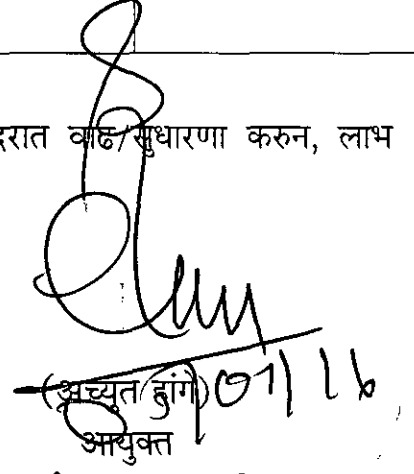 दरात वाढ/सुधारणा करुन, लाभ
(अच्युत हांगे)
आयुक्त